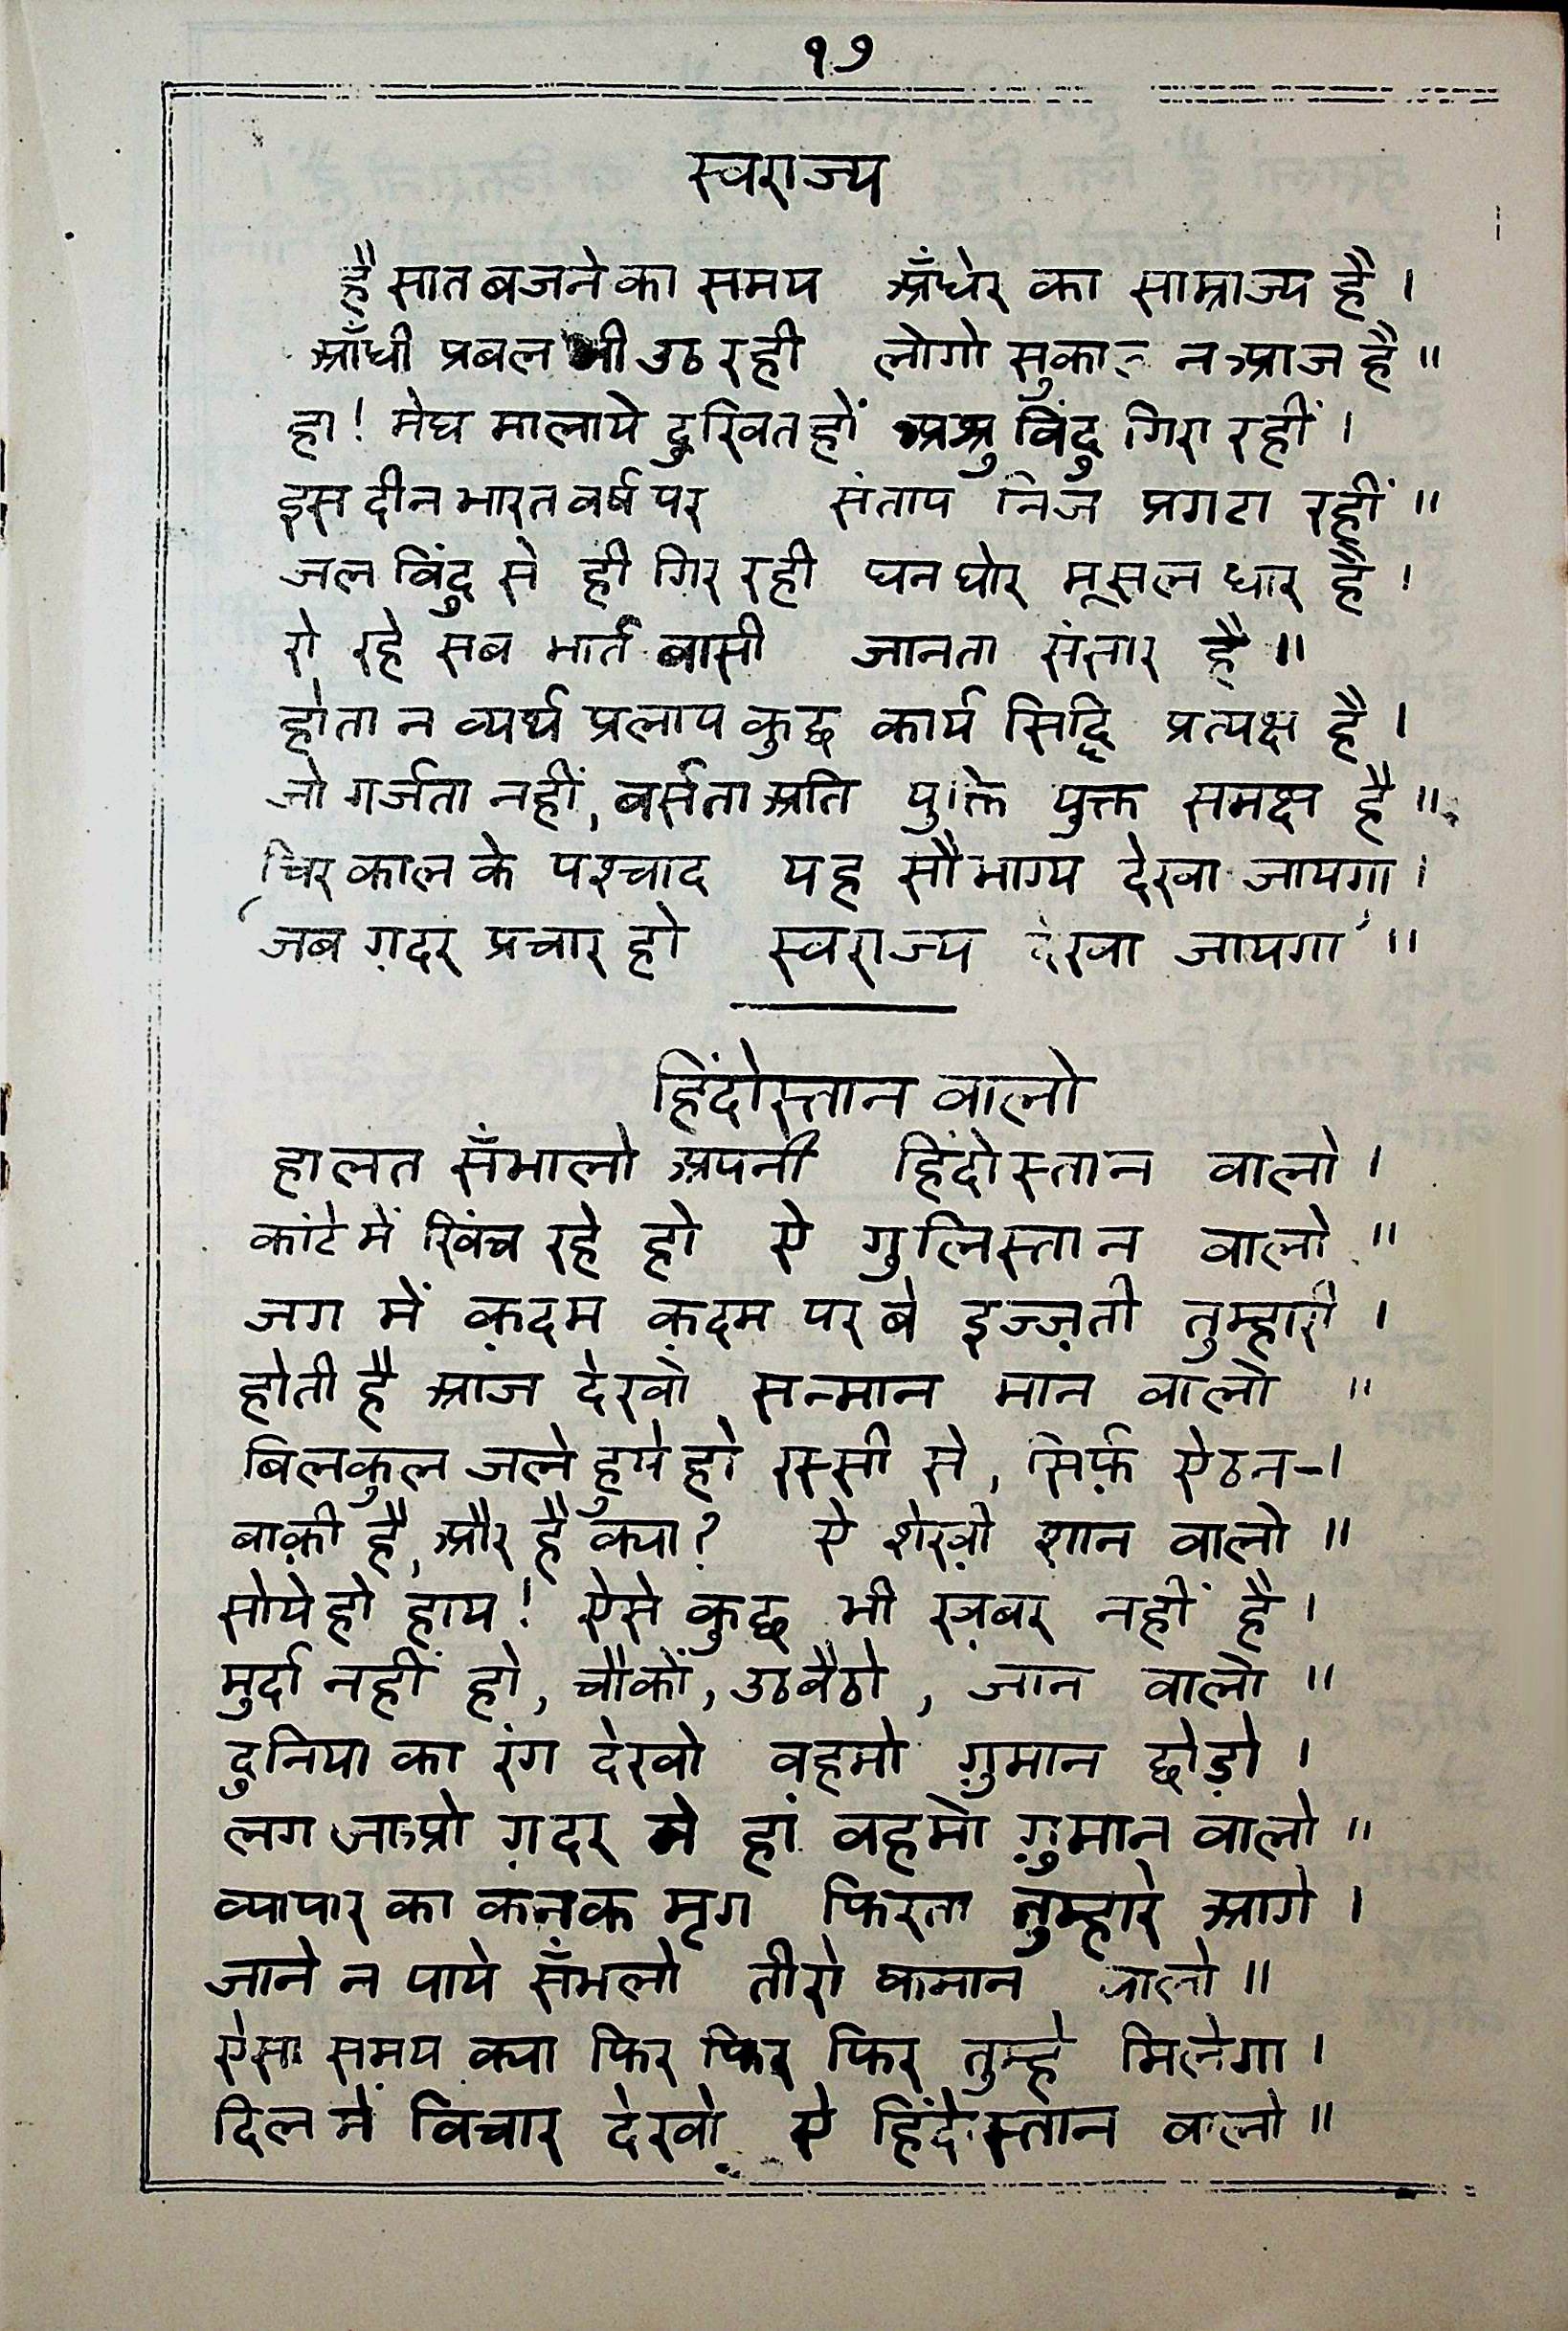 १७
स्वराज्य
है सात बजने का समय अँधेर का साम्राज्य है ।
आँधी प्रबल भी उठ रही लोगो सुका न आज है ॥
हा ! मेघ मालाये दुखित हों अश्रु विंदु गिरा रहीं ।
इस दीन भारत वर्ष पर संताप निज प्रगटा रहीं ॥
जल विंदु से ही गिर रही घन घोर मूसल धार है ।
रो रहे सब भार्त बासी जानता संसार है ॥
होता न व्यर्थ प्रलाप कुछ कार्य सिद्धि प्रत्यक्ष है ।
जो गर्जता नहीं, बर्सता अति युक्ति युक्त समक्ष है ॥
चिर काल के पश्चाद यह सौभाग्य देखा जायगा ।
‘जब ग़दर प्रचार हो स्वराज्य देखा जायगा’ ॥
हिंदोस्तान वालो
हालत सँभालो अपनी हिंदोस्तान वालो ।
कांटे में खिंच रहे हो ऐ गुलिस्तान वालो ॥
जग में क़दम क़दम पर बे इज्ज़ती तुम्हारी ।
होती है आज देखो सन्मान मान वालो ॥
बिलकुल जले हुये हो रस्सी से, सिर्फ़ ऐठन-।
बाक़ी है, और है क्या ? ऐ शेख़ो शान वालो ॥
सोये हो हाय ! ऐसे कुछ भी ख़बर नहीं है ।
मुर्दा नहीं हो, चौकों, उठ बैठो, जान वालो ॥
दुनिया का रंग देखो वहमो ग़ुमान छोड़ो ।
लग जाओ ग़दर मे हां वहमो ग़ुमान वालो ॥
व्यापार का कनक मृग फिरता तुम्हारे आगे ।
जाने न पाये सँभलो तीरो कमान वालो ॥
ऐसा समय क्या फिर फिर फिर तुम्हे मिलेगा ।
दिल में विचार देखो ऐ हिंदोस्तान वालो ॥